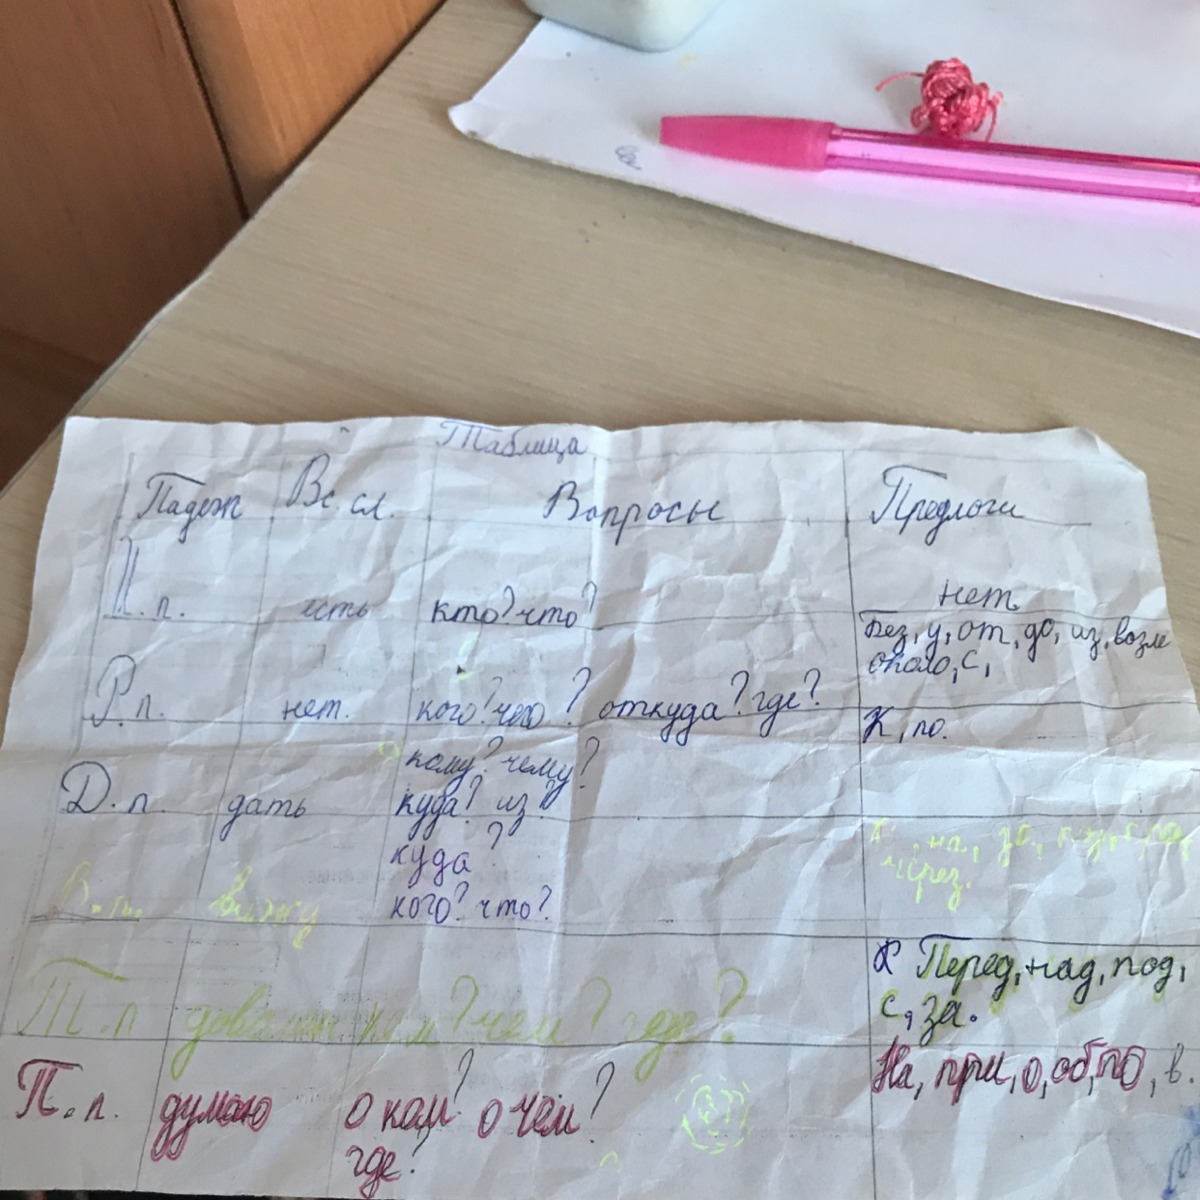 Таблица
Падеж Вс. сл. Вопросы Предлоги
И.п. есть кто? что? нет
Р.п. нет. кого? чего? откуда? где? Без, у, от, до, из, возле
около, с,
Д.п. дать кому? чему? К, по.
куда? из?
В.п. вижу куда? на, за,
кого? что? через.
Т.п кем? чем? где? Перед, над, под,
с, за.
П.п. думаю о ком? о чём? На, при, о, об, по, в.
где?